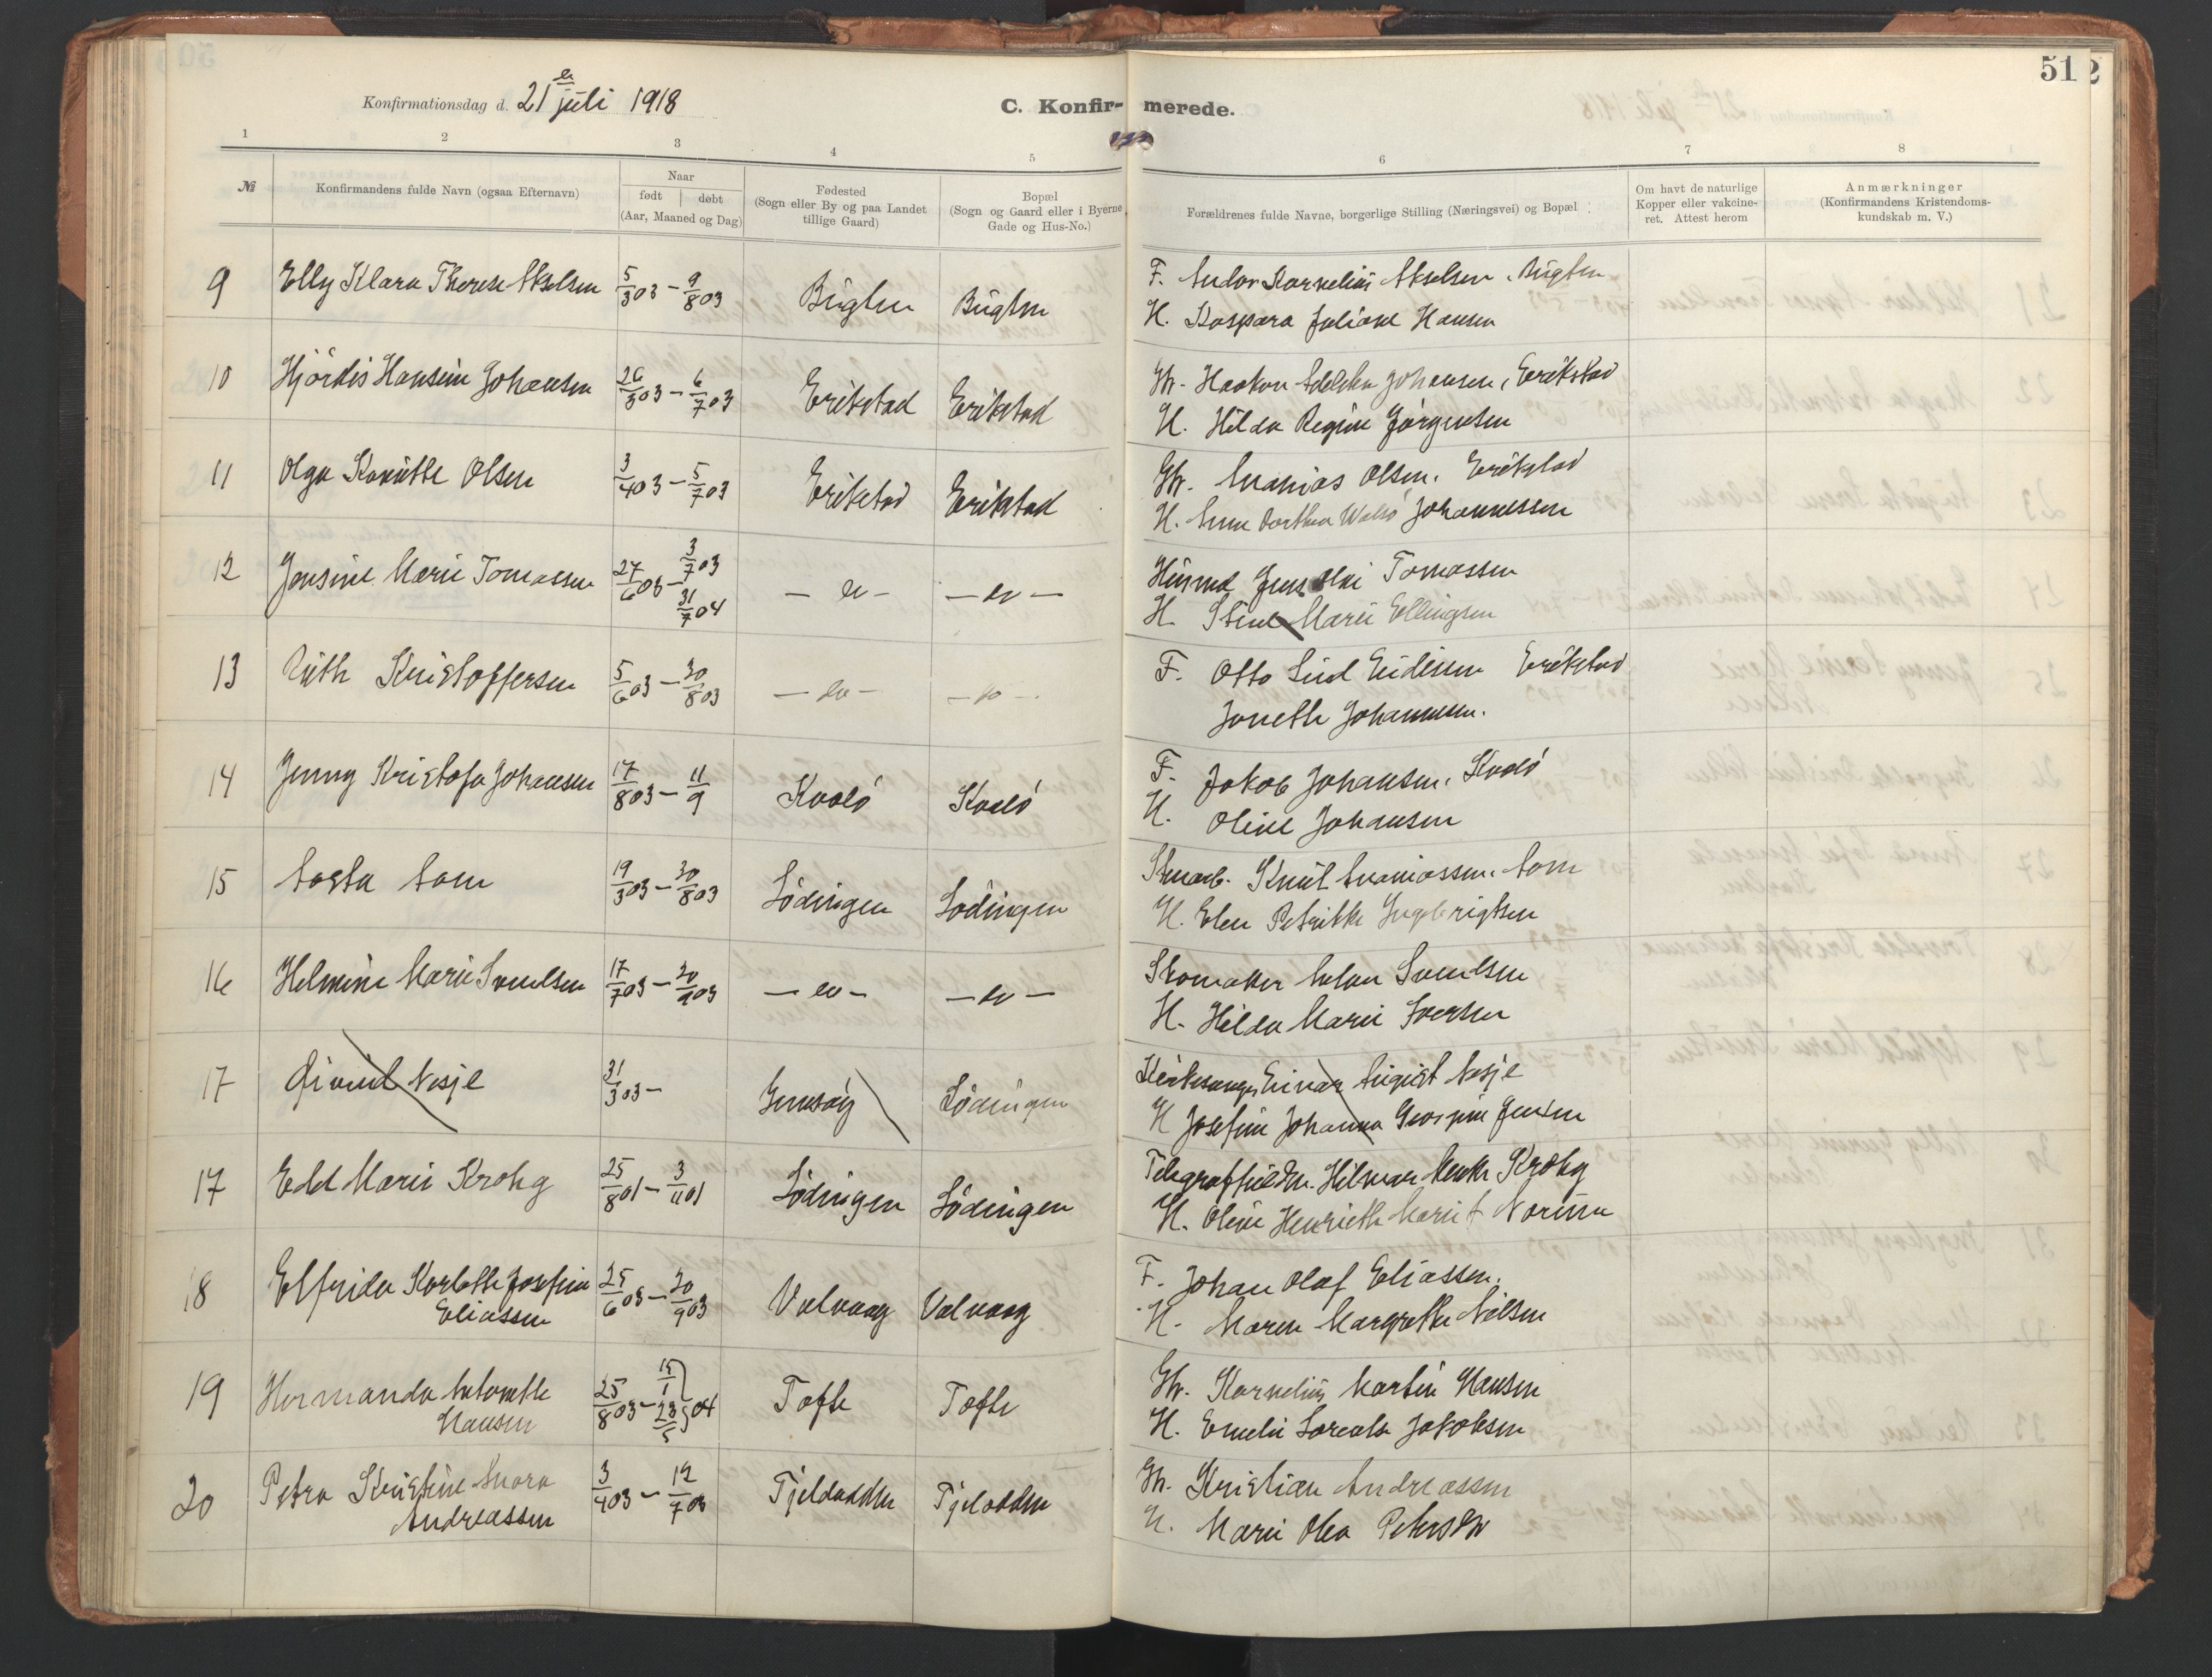 Konfirmationsdag d. 21 de juli 1918
C. Konfir- merede.
51
1 2 3 4 5 6 7 8
№
Konfirmandens fulde Navn (ogsaa Efternavn)
Naar
født | døbt
(Aar, Maaned og Dag)
Fødested
(Sogn eller By og paa Landet
tillige Gaard)
Bopæl
(Sogn og Gaard eller i Byerne
Gade og Hus-No.)
Forældrenes fulde Navne, borgerlige Stilling (Næringsvei) og Bopæl
Om havt de naturlige
Kopper eller vakcine-
ret. Attest herom
Anmærkninger
(Konfirmandens Kristendoms-
kundskab m. V.)
9 Elly Klara Therese Akselsen 5/3 03 – 9/8 03 F. Andor Kornelius Akselsen
H. Kaspara Juliane Hansen
10 Hjördis Hansine Johansen 6/7 03 Erikstad Erikstad Gbr. Haakon Johansen, Erikstad
H. Hilda Regine Jörgensen
11 Olga Olsen 3/4 03 – 5/7 03 Erikstad Erikstad Gbr. Ananias Olsen. Erikstad
H. Anne Dorthea Johannessen
12 Jensine Marie Tomassen 27/6 03 – 3/7 03
31/7 04 – do – – do – Husmd Jens Tomassen
H. Stine Marie Ellingsen
13 Ruth Kristoffersen 5/6 03 – 30/8 03 – do – – do – F. Otto Erikstad
Jonette Johannessen.
14 Jenny Kristofa Johansen 17/8 03 – 11/9 F. Jakob Johansen.
H. Oline Johansen
15 Aasta Aam 19/3 03 – 30/8 03 Lødingen Lødingen Knut Ananiassen Aam
H. Elen Petrikke Ingebrigtsen
16 Helmine Marie 17/7 03 – – do – – do – Skomaker
H. Hilda Marie Iversen
17 Øivind Nesje 31/3 03 – Lødingen Kirkesanger Einar August Nesje
H Josefine Johanna Jensen
17 Edel Marie Krohg 25/8 01 – 3/11 01 Lødingen Lødingen Hilmar Krohg
H. Oline Henriette Marie
18 Elfrida Karlotte Josefine
Eliassen 25/6 03 – 20/9 03 Valvaag Valvaag F. Johan Olaf Eliassen.
H. Maren Margrethe Nilsen
19 Hermanda Antonette
Hansen 25/8 03 – 15/1 23/5 04 Tofte Tofte Gbr. Kornelius Martin Hansen
H. Emelie Jakobsen
20 Petra Kristine
Andreassen 3/4 03 – 12/7 03 Tjeldodden Tjeldodden Gbr. Kristian Andreassen
H. Marie Olea Petersen